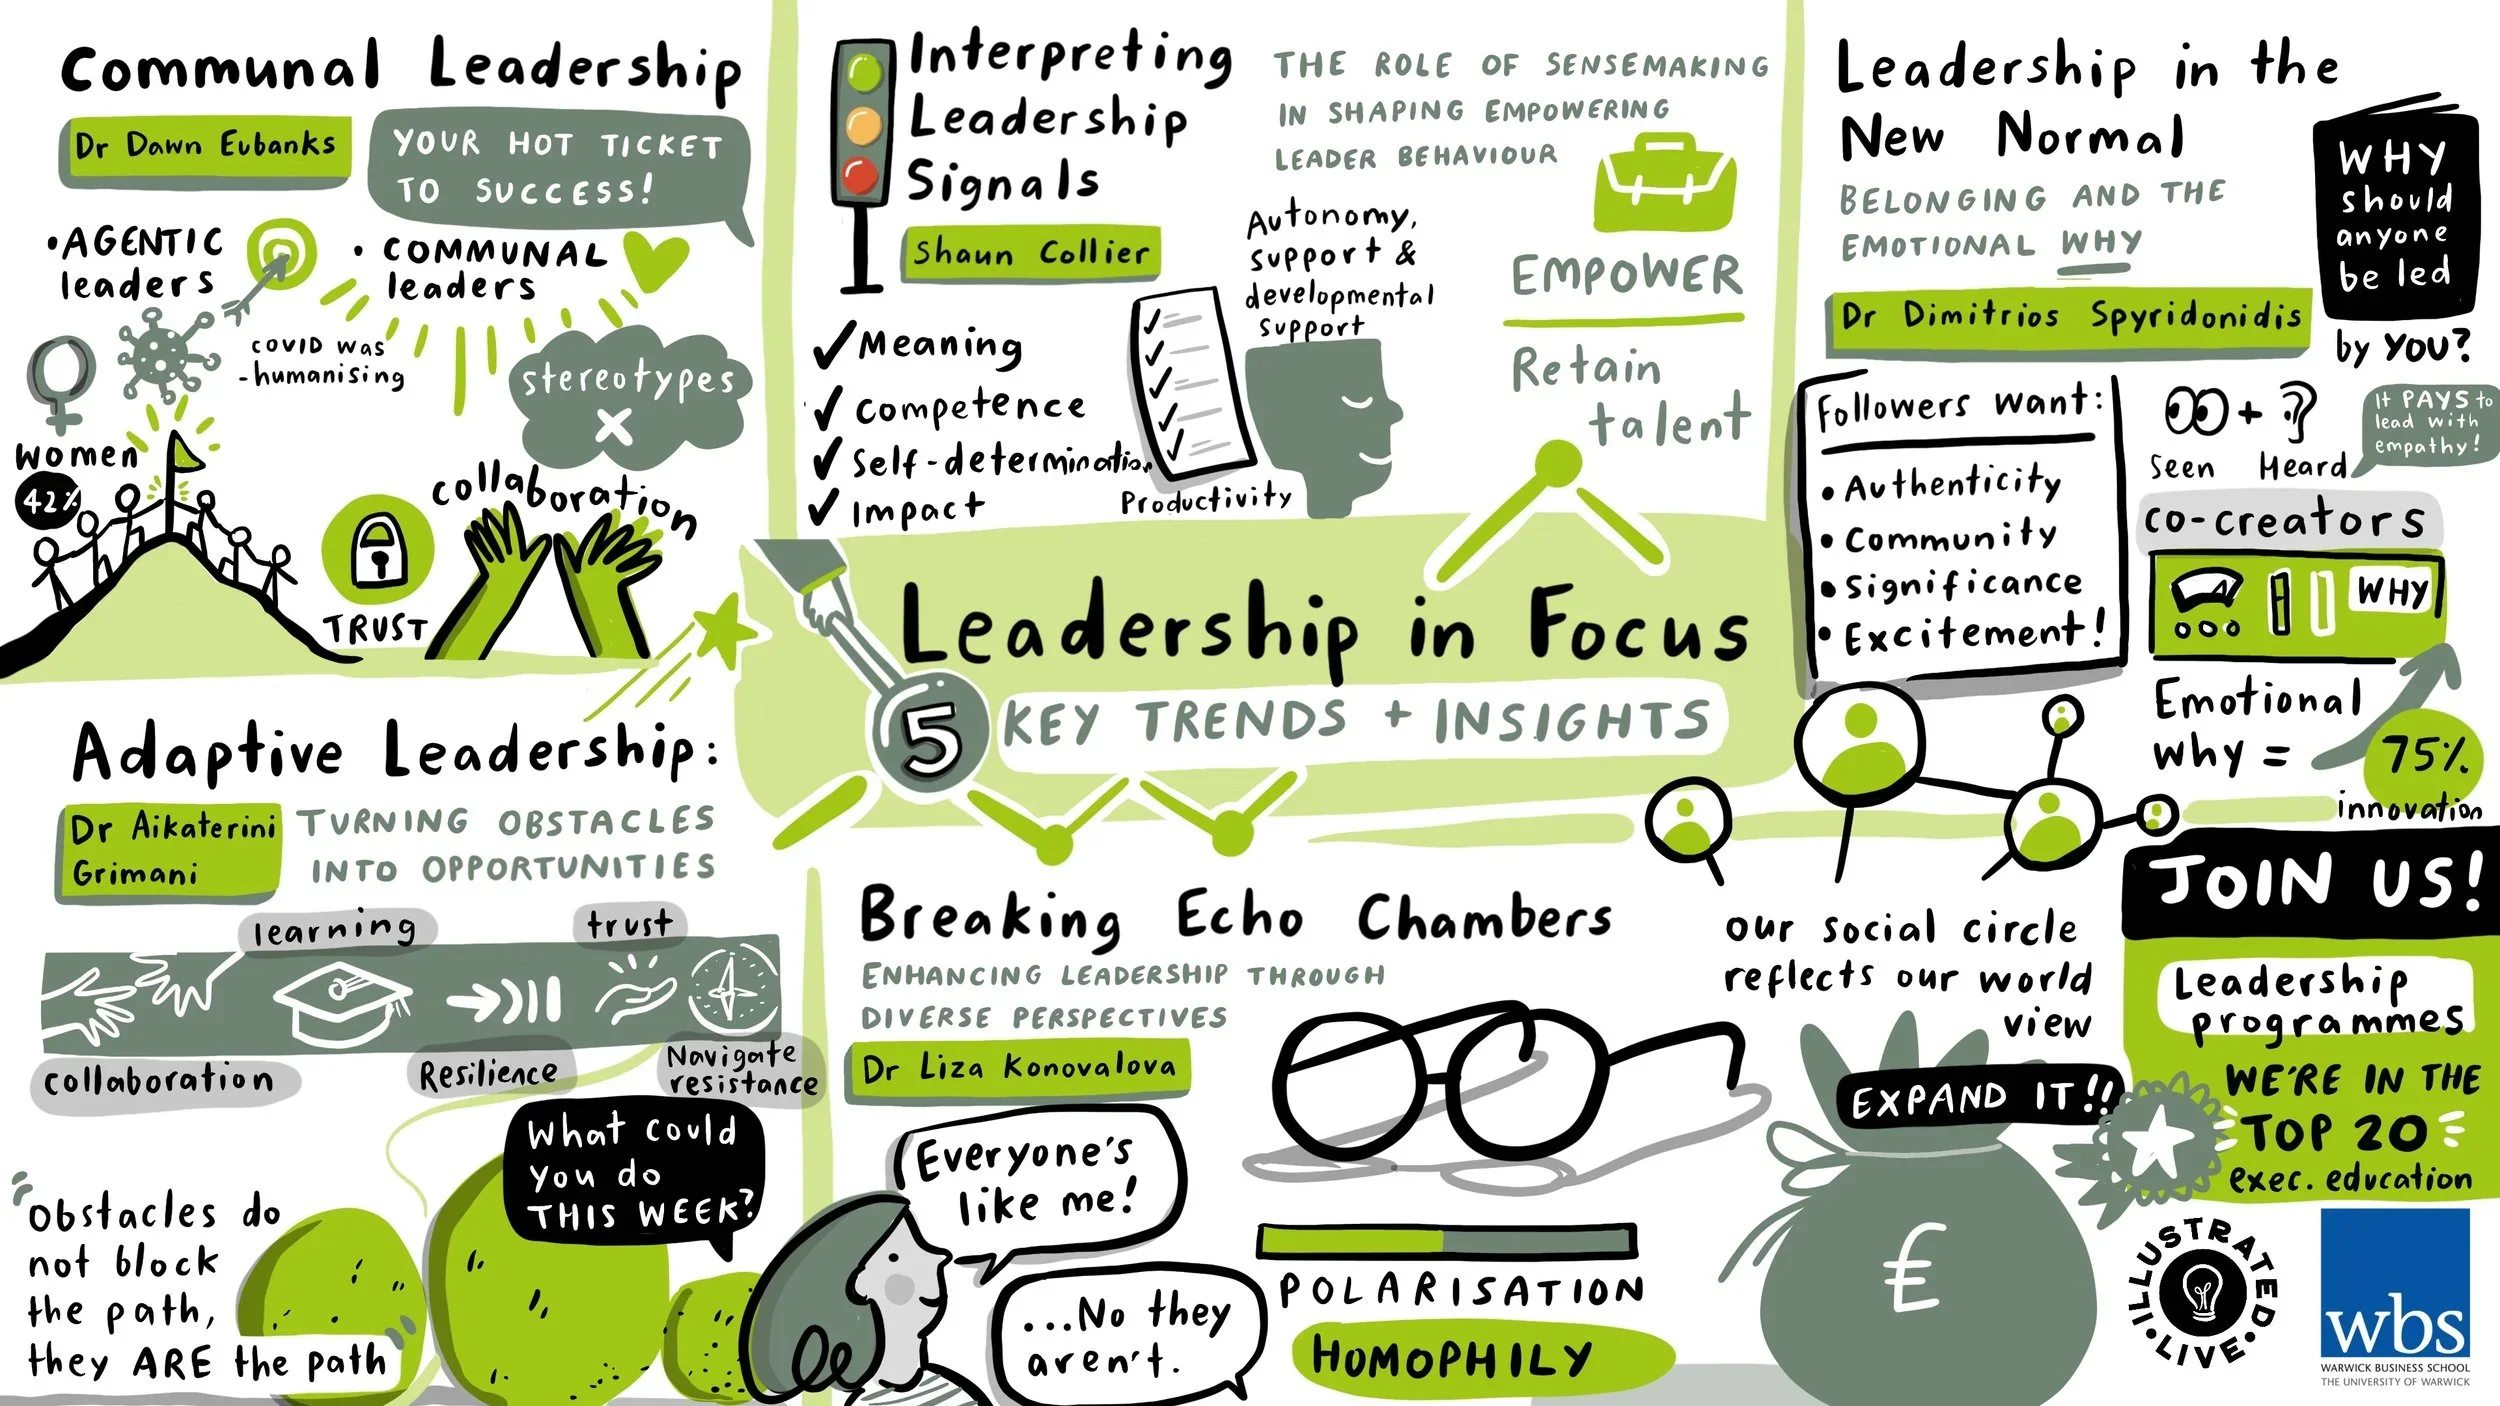 Communal Leadership
Dr Dawn Eubanks
YOUR HOT TICKET
TO SUCCESS!
•AGENTIC
leaders
• COMMUNAL
leaders
COVID was
-humanising
stereotypes
X
women
42%
TRUST
collaboration
Interpreting
Leadership
Signals
Shaun Collier
THE ROLE OF SENSEMAKING
IN SHAPING EMPOWERING
LEADER BEHAVIOUR
Autonomy,
support &
developmental
support
Meaning
Competence
Self-determination
Impact
Productivity
EMPOWER
Retain
talent
Leadership in the
New Normal
BELONGING AND THE
EMOTIONAL WHY
Dr Dimitrios Spyridonidis
WHY
should
anyone
be led
by YOU?
Followers want:
• Authenticity
• Community
• Significance
• Excitement!
+
Seen Heard
It PAYS to
lead with
empathy!
co-creators
WHY
Emotional
why =
75%
innovation
Leadership in Focus
5 KEY TRENDS + INSIGHTS
Adaptive Leadership:
Dr Aikaterini
Grimani
TURNING OBSTACLES
INTO OPPORTUNITIES
learning
trust
collaboration
Resilience
Navigate
resistance
What could
you do
THIS WEEK?
"Obstacles do
not block
the path,
they ARE the path"
Breaking Echo Chambers
ENHANCING LEADERSHIP THROUGH
DIVERSE PERSPECTIVES
Dr Liza Konovalova
Everyone's
like me!
...No they
aren't.
POLARISATION
HOMOPHILY
our social circle
reflects our world
view
EXPAND IT!!
£
JOIN US!
Leadership
programmes
WE'RE IN THE
TOP 20
exec. education
ILLUSTRATED.
•LIVE•
wbs
WARWICK BUSINESS SCHOOL
THE UNIVERSITY OF WARWICK